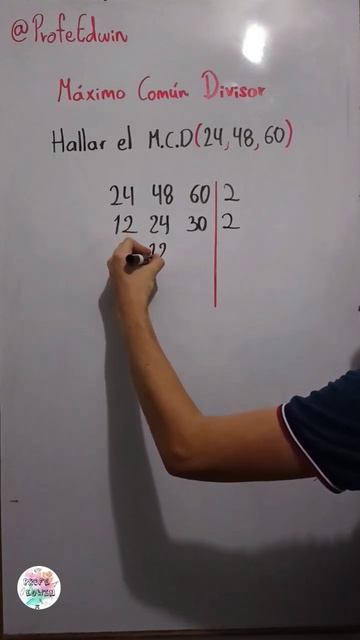 @ProfeEdwin
Máximo Común Divisor
Hallar el M.C.D(24,48,60)
24 48 60 | 2
12 24 30 | 2
12
PROFE
EDWIN